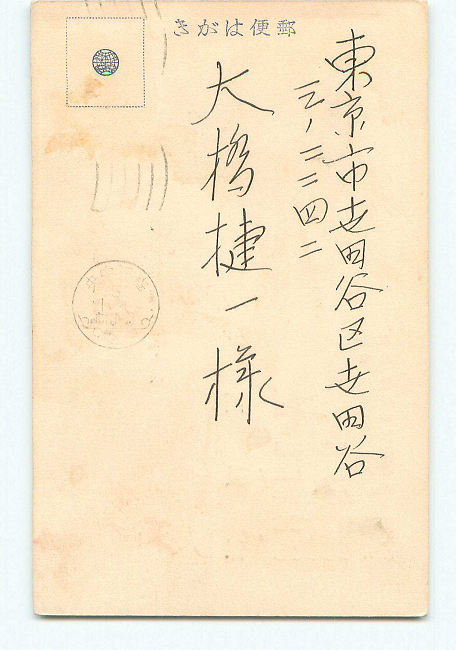 きがは便郵
東京市世田谷区世田谷
三ノ二二四二
大橋捷一様